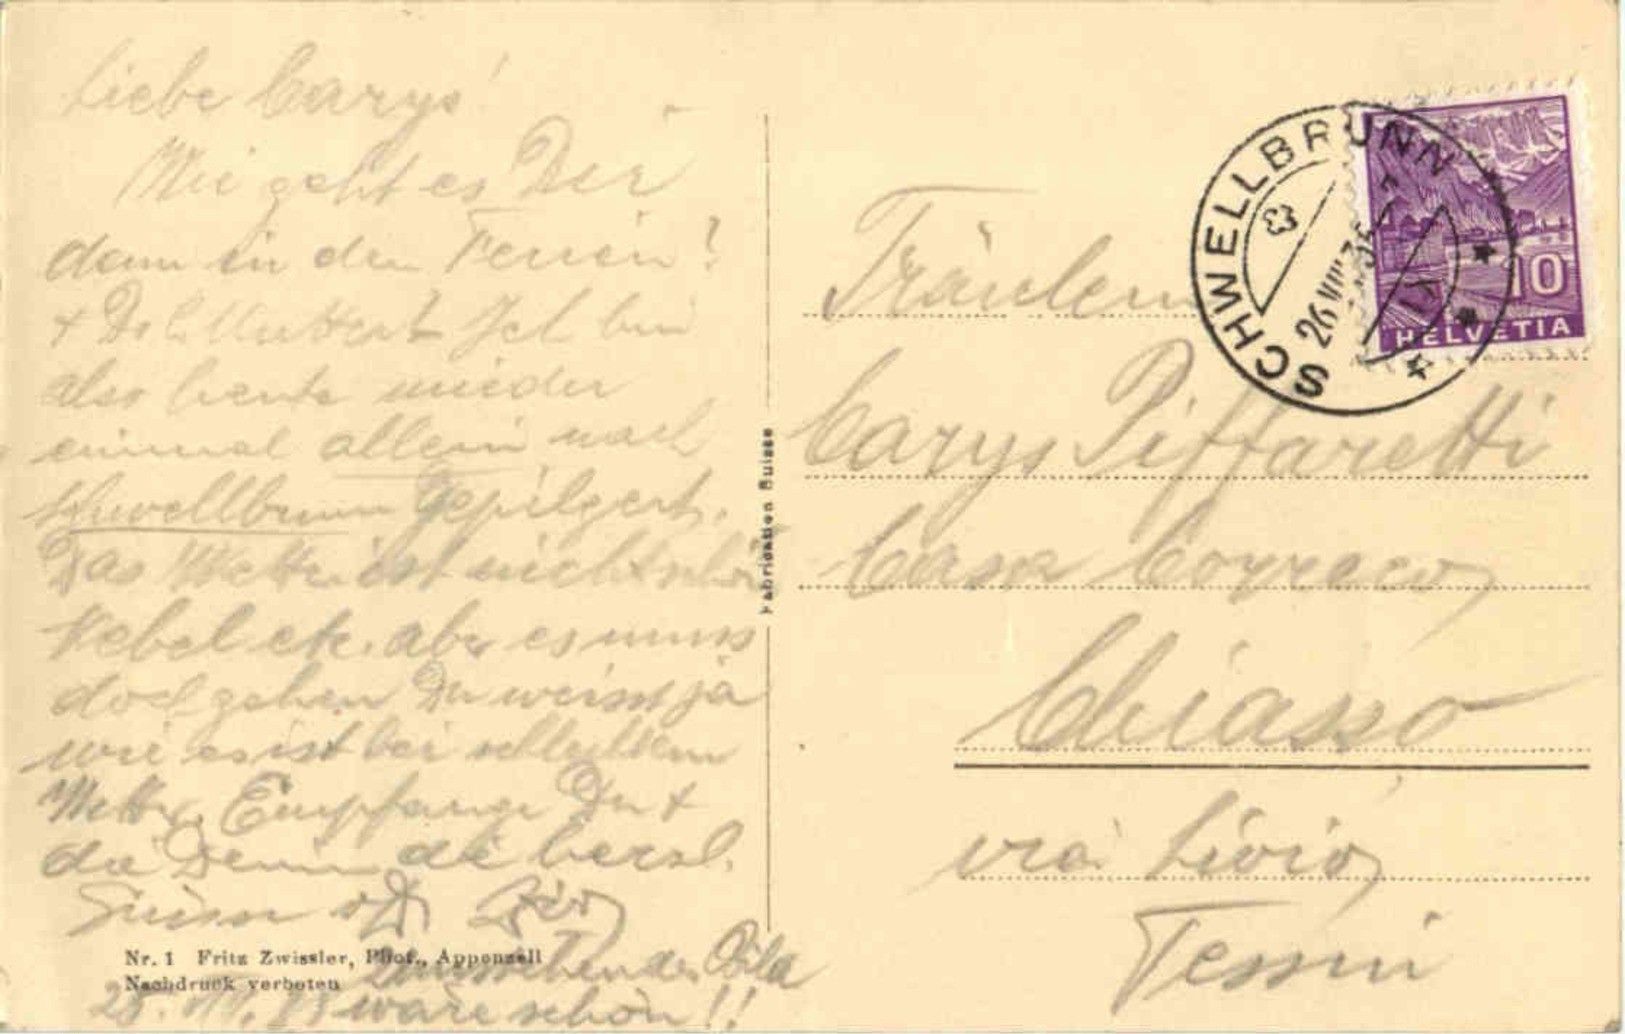 Liebe Carys!
Wie geht es Dir
dann in den Ferien?
+ Ich bin
also heute wieder
einmal allein nach
Schwellbrunn gepilgert.
Das Wetter ist nicht schön
Nebel etc. aber es muss
doch gehen Du weisst ja
wie es ist bei schlechtem
Wetter. Empfange Du +
die Deinen die herzl.
Grüsse
wäre schön!!
Nr. 1 Fritz Zwissler, Phot., Appenzell
Nachdruck verboten
Fabrication Suisse
SCHWELLBRUNN
26.VIII.35
HELVETIA
10
Fräulein
Carys Piffaretti
Casa
Chiasso
via Livio,
Tessin